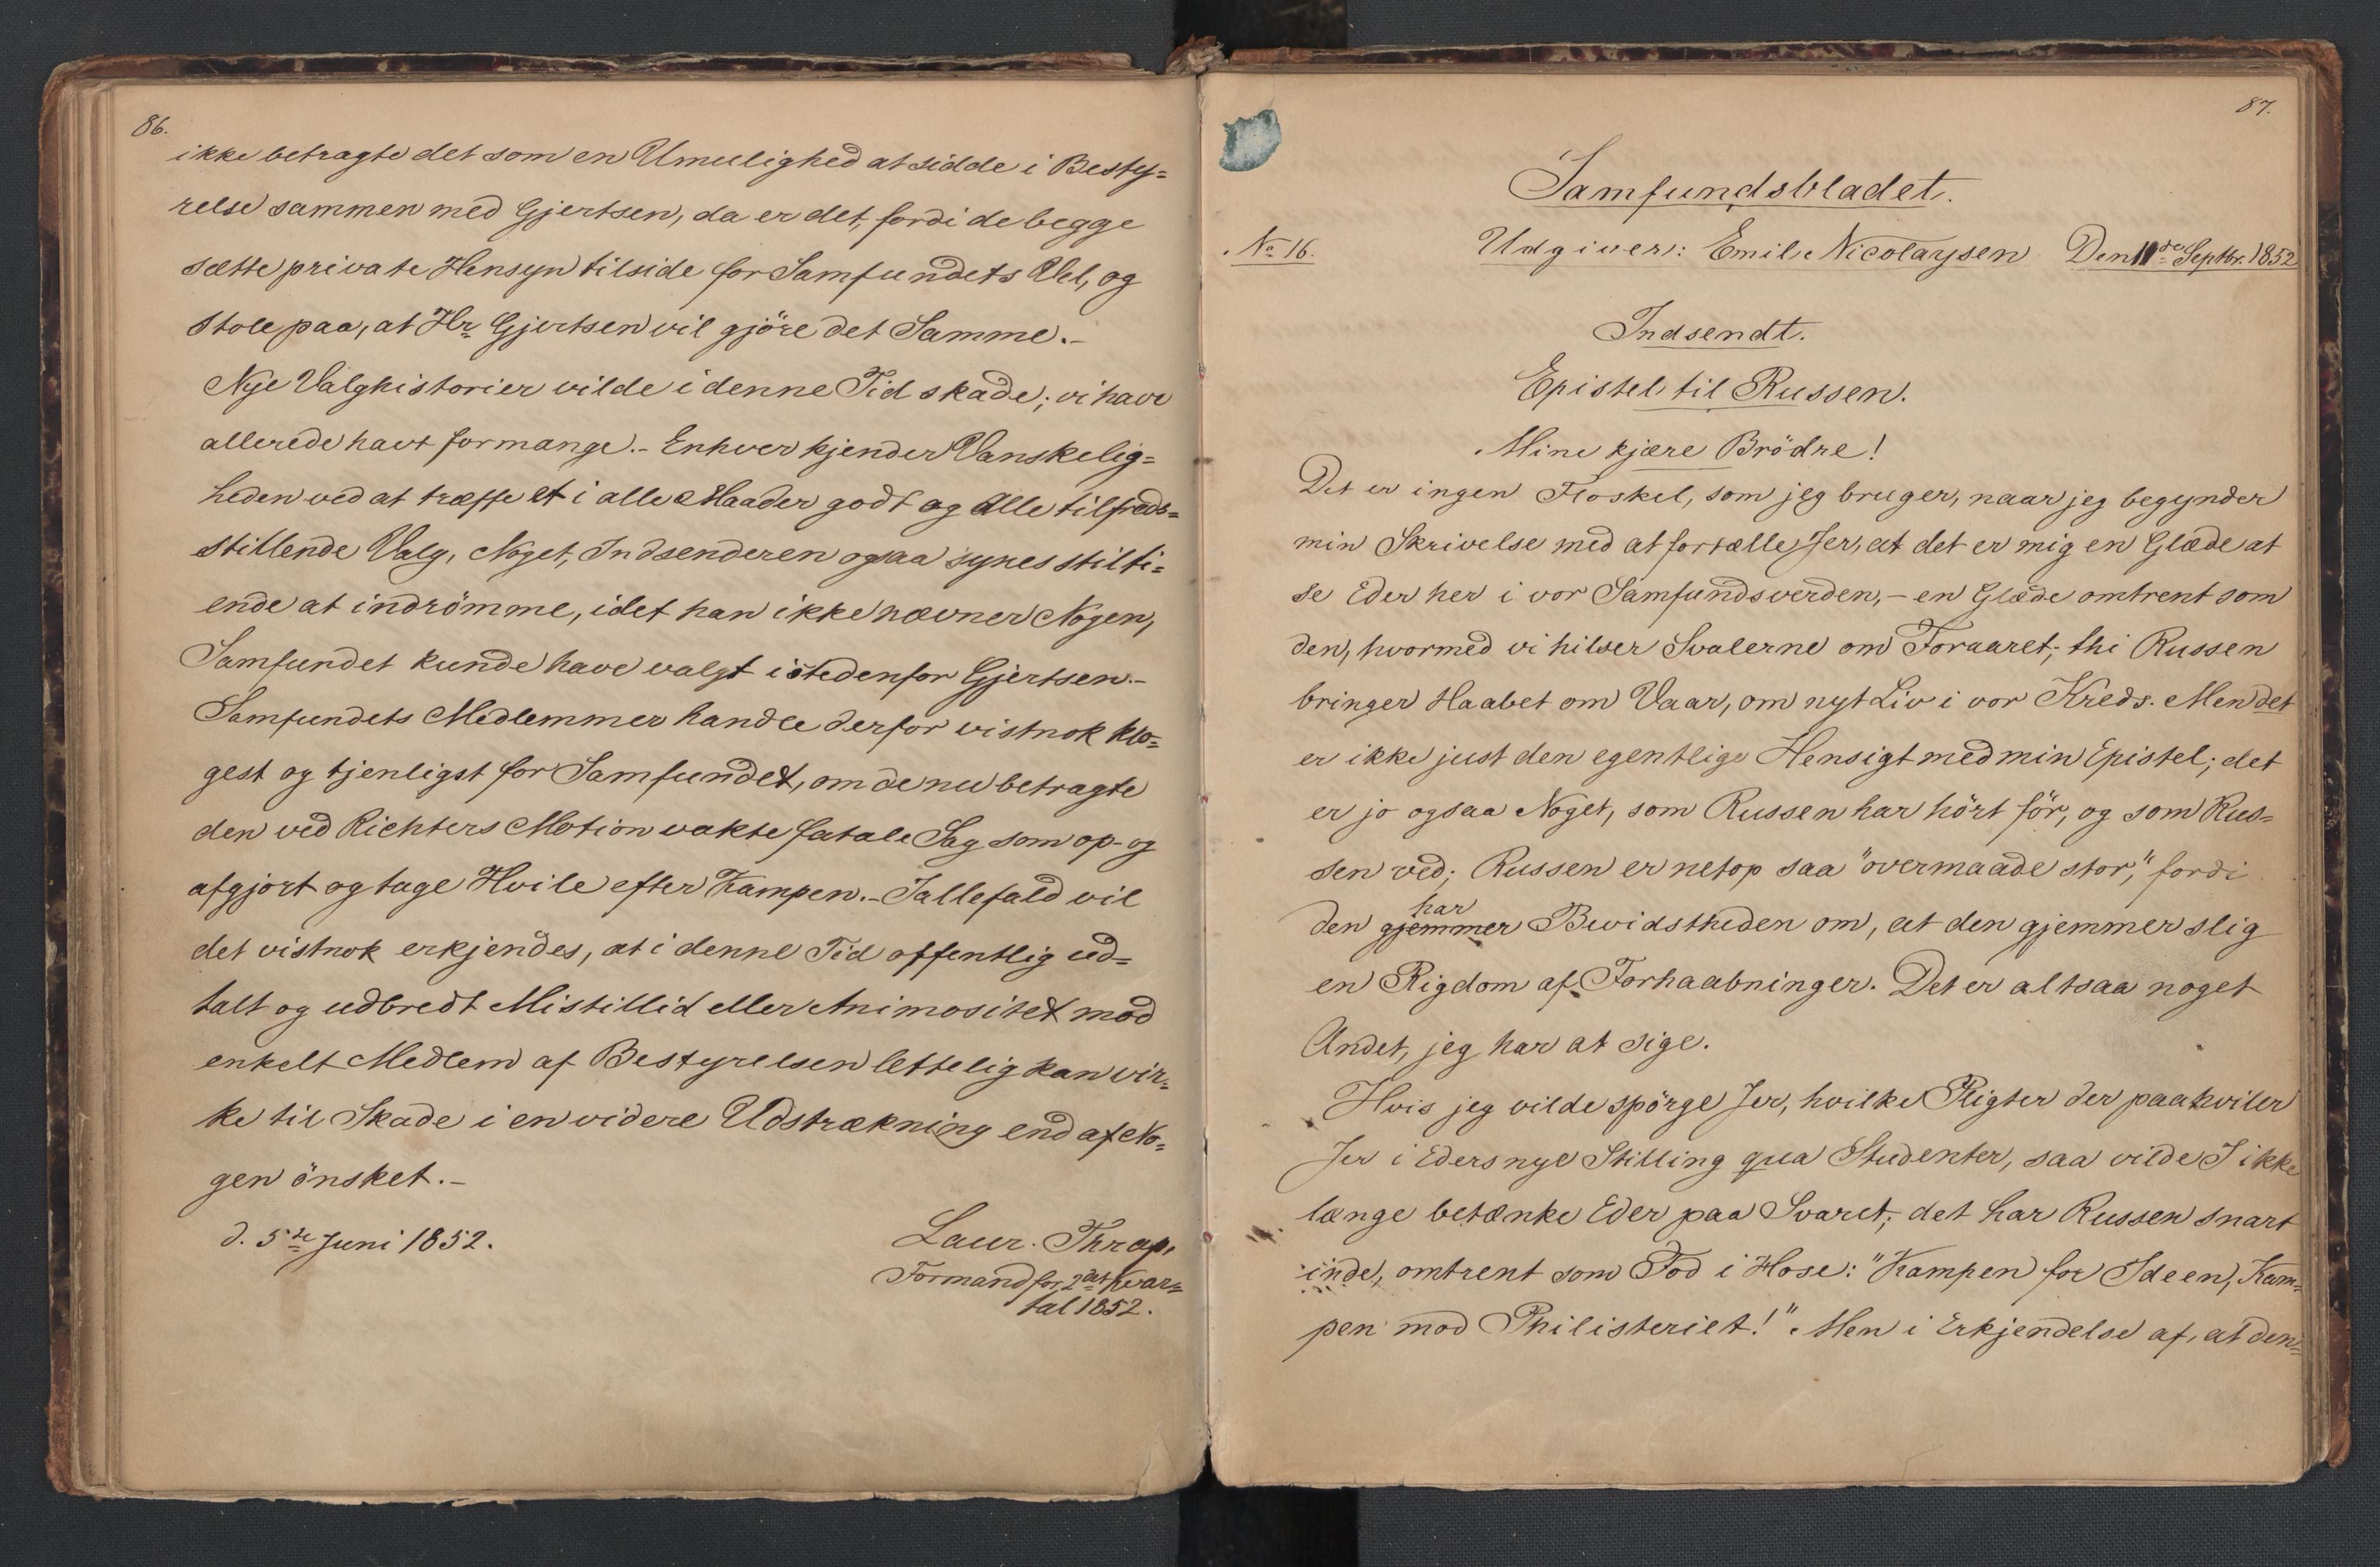 86.
ikke betragte det som en Umulighed at sidde i Besty=
relse sammen med Gjertsen, da er det, fordi de begge
sætte private Hensyn tilside for Samfundets Vel, og
stole paa, at Hr. Gjertsen vil gjöre det Samme.-
Nye Valghistorier vilde i denne Tid skade; vi have
allerede havt for mange.- Enhver kjender Vanskelig=
heden ved at træffe et i alle Maader godt og Alle tilfreds=
stillende Valg, Noget, Indsenderen ogsaa synes stilti=
ende at indrömme, idet han ikke nævner Nogen,
Samfundet kunde have valgt istedenfor Gjertsen.-
Samfundets Medlemmer handle derfor vistnok klo=
gest og tjenligst for Samfundet, om de nu betragte
den ved Richters Motion vakte fatale Sag som op- og
afgjort og tage Hvile efter Kampen.- Iallefald vil
det vistnok erkjendes, at i denne Tid offentlig ud=
talt og udbredt Mistillid eller Animositet mod
enkelt Medlem af Bestyrelsen lettelig kan vir=
ke til Skade i en videre Udstrækning end af No=
gen önsket.-
d. 5te Juni 1852.
Laur. Thrap,
Formand for 2det Kvar=
tal 1852.
87.
Samfundsbladet.
No 16.
Udgiver: Emil Nicolaysen
Den 11de Septbr. 1852
Indsendt.
Epistel til Russen.
Mine kjære Brödre!
Det er ingen Floskel, som jeg bruger, naar jeg begynder
min Skrivelse med at fortælle Jer, at det er mig en Glæde at
se Eder her i vor Samfundsverden,- en Glæde omtrent som
den, hvormed vi hilser Svalerne om Foraaret; thi Russen
bringer Haabet om Vaar, om nyt Liv i vor Kreds. Men det
er ikke just den egentlige Hensigt med min Epistel; det
er jo ogsaa Noget, som Russen har hört för, og som Rus=
sen ved; Russen er netop saa "overmaade stor," fordi
har
den gjemmer Bevidstheden om, at den gjemmer slig
en Rigdom af Forhaabninger. Det er altsaa noget
Andet, jeg har at sige.
Hvis jeg vilde spörge Jer, hvilke Pligter der paahviler
Jer i Eders nye Stilling qua Studenter, saa vilde I ikke
længe betænke Eder paa Svaret; det har Russen snart
inde, omtrent som Fod i Hose: "Kampen for Ideen, Kam=
pen mod Philisteriet!" Men i Erkjendelse af, at den=